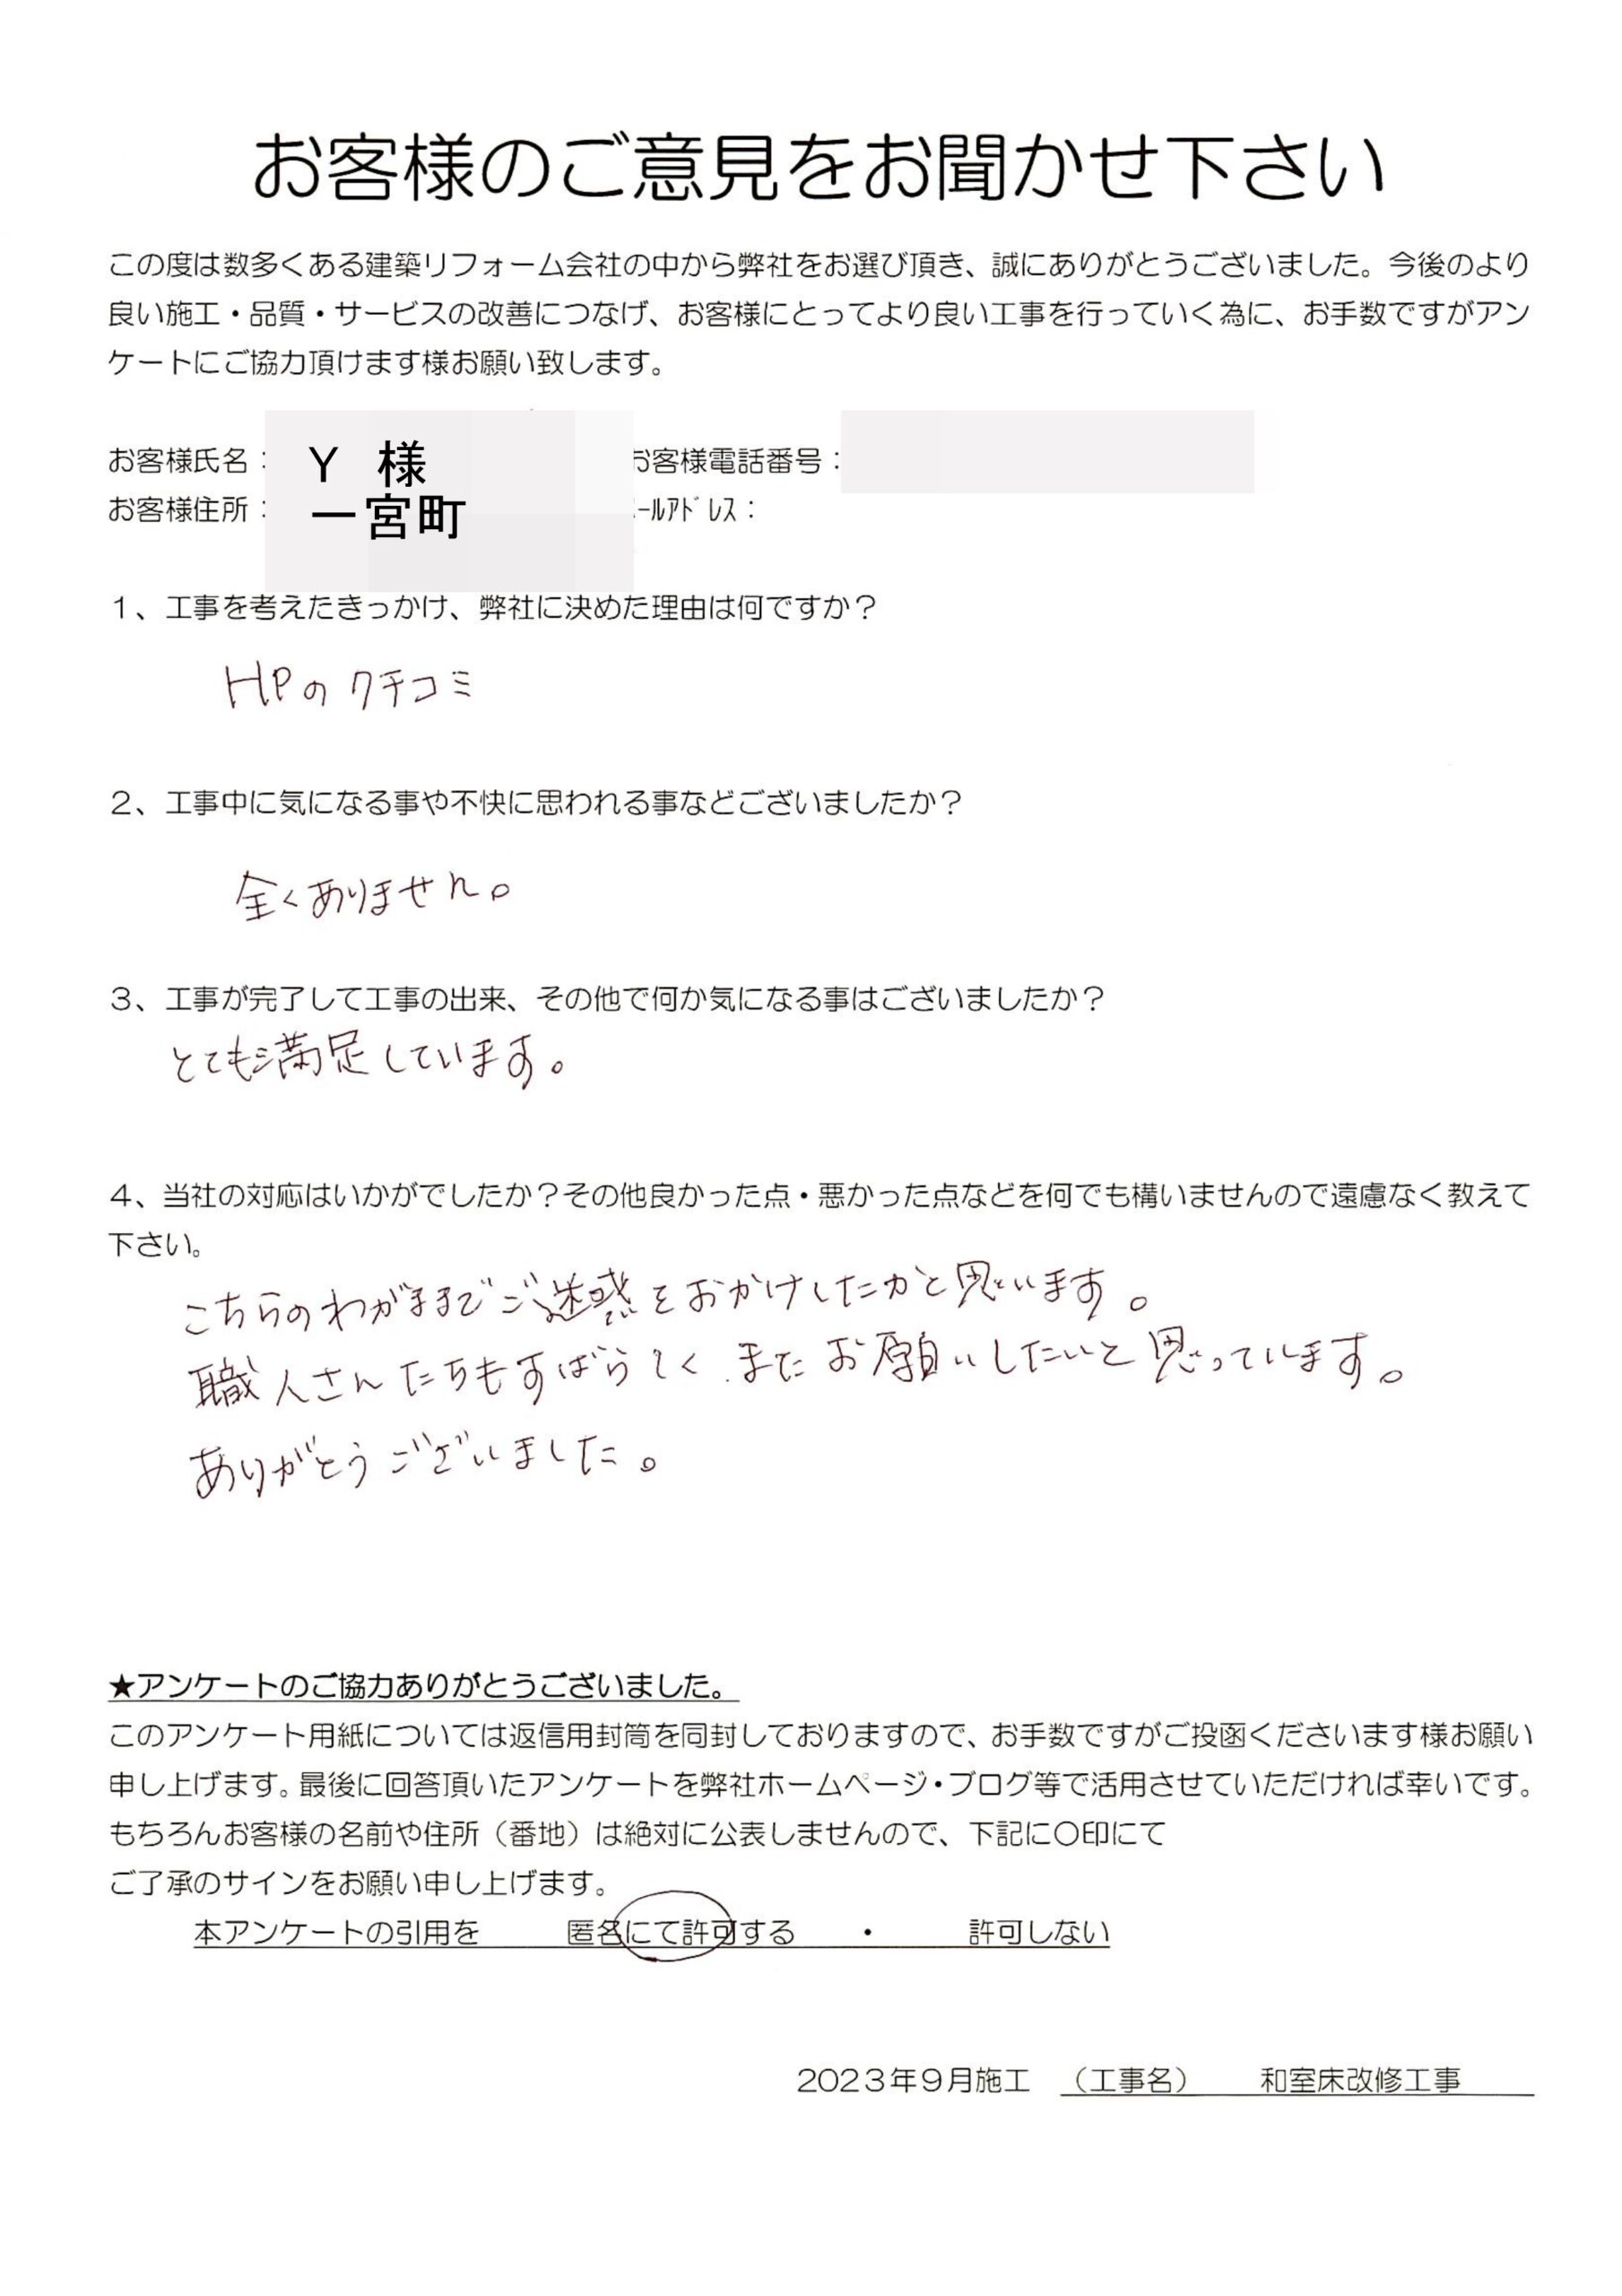 お客様のご意見をお聞かせ下さい
この度は数多くある建築リフォーム会社の中から弊社をお選び頂き、誠にありがとうございました。今後のより
良い施工・品質・サービスの改善につなげ、お客様にとってより良い工事を行っていく為に、お手数ですがアン
ケートにご協力頂けます様お願い致します。
お客様氏名： Y 様 お客様電話番号：
お客様住所： 一宮町 ｰﾙｱﾄﾞﾚｽ：
１、工事を考えたきっかけ、弊社に決めた理由は何ですか？
HPのクチコミ
２、工事中に気になる事や不快に思われる事などございましたか？
全くありません。
３、工事が完了して工事の出来、その他で何か気になる事はございましたか？
とても満足しています。
４、当社の対応はいかがでしたか？その他良かった点・悪かった点などを何でも構いませんので遠慮なく教えて
下さい。
こちらのわがままでご迷惑をおかけしたかと思います。
職人さんたちもすばらしく、またお願いしたいと思っています。
ありがとうございました。
★アンケートのご協力ありがとうございました。
このアンケート用紙については返信用封筒を同封しておりますので、お手数ですがご投函くださいます様お願い
申し上げます。最後に回答頂いたアンケートを弊社ホームページ・ブログ等で活用させていただければ幸いです。
もちろんお客様の名前や住所（番地）は絶対に公表しませんので、下記に〇印にて
ご了承のサインをお願い申し上げます。
本アンケートの引用を 匿名にて許可する ・ 許可しない
２０２３年９月施工 （工事名） 和室床改修工事